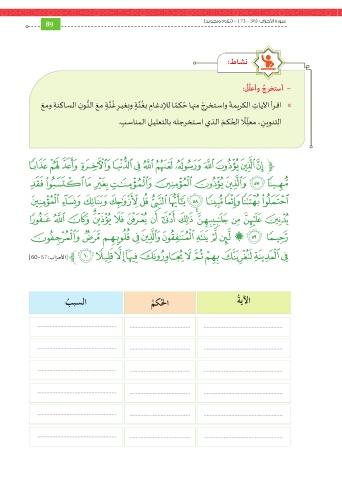 سورة الأحزاب (36 - 73) - (تلاوة وتجويد)
89
نشاط:
- أستخرجُ وأعلّل:
» اقرأ الآيات الكريمة واستخرج منها حُكمًا للإدغام بغُنّةٍ وبغير غُنّةٍ معَ النُّون الساكنة ومعَ
التنوين، معلِّلًا الحكمَ الذي استخرجته بالتعليل المناسب.
﴿ إِنَّ ٱلَّذِينَ يُؤْذُونَ ٱللَّهَ وَرَسُولَهُۥ لَعَنَهُمُ ٱللَّهُ فِى ٱلدُّنْيَا وَٱلْءَاخِرَةِ وَأَعَدَّ لَهُمْ عَذَابًا
مُّهِينًا ٥٧ وَٱلَّذِينَ يُؤْذُونَ ٱلْمُؤْمِنِينَ وَٱلْمُؤْمِنَٰتِ بِغَيْرِ مَا ٱكْتَسَبُوا۟ فَقَدِ
ٱحْتَمَلُوا۟ بُهْتَٰنًا وَإِثْمًا مُّبِينًا ٥٨ يَٰٓأَيُّهَا ٱلنَّبِىُّ قُل لِّأَزْوَٰجِكَ وَبَنَاتِكَ وَنِسَآءِ ٱلْمُؤْمِنِينَ
يُدْنِينَ عَلَيْهِنَّ مِن جَلَٰبِيبِهِنَّ ذَٰلِكَ أَدْنَىٰٓ أَن يُعْرَفْنَ فَلَا يُؤْذَيْنَ وَكَانَ ٱللَّهُ غَفُورًا
رَّحِيمًا ٥٩ ۞ لَّئِن لَّمْ يَنتَهِ ٱلْمُنَٰفِقُونَ وَٱلَّذِينَ فِى قُلُوبِهِم مَّرَضٌ وَٱلْمُرْجِفُونَ
فِى ٱلْمَدِينَةِ لَنُغْرِيَنَّكَ بِهِمْ ثُمَّ لَا يُجَاوِرُونَكَ فِيهَآ إِلَّا قَلِيلًا ٦٠ ﴾ [الأحزاب: 57-60]
الآيةُ الحُكمُ السببُ